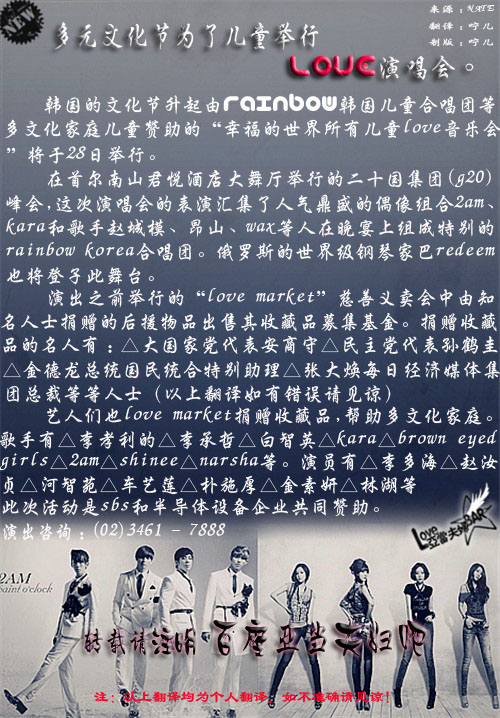 NEW
来源：NATE
翻译：咛儿
制版：咛儿
多元文化节为了儿童举行
LOVE演唱会。
韩国的文化节升起由Rainbow韩国儿童合唱团等
多文化家庭儿童赞助的“幸福的世界所有儿童love音乐会
”将于28日举行。
在首尔南山君悦酒店大舞厅举行的二十国集团(g20)
峰会,这次演唱会的表演汇集了人气鼎盛的偶像组合2am、
kara和歌手赵城模、昂山、wax等人在晚宴上组成特别的
rainbow korea合唱团。俄罗斯的世界级钢琴家巴redeem
也将登于此舞台。
演出之前举行的“love market”慈善义卖会中由知
名人士捐赠的后援物品出售其收藏品募集基金。捐赠收藏
品的名人有：△大国家党代表安商守△民主党代表孙鹤圭
△金德龙总统国民统合特别助理△张大焕每日经济媒体集
团总裁等等人士（以上翻译如有错误请见谅）
艺人们也love market捐赠收藏品,帮助多文化家庭。
歌手有△李孝利的△李承哲△白智英△kara△brown eyed
girls△2am△shinee△narsha等。演员有△李多海△赵汝
贞△河智苑△车艺莲△朴施厚△金素妍△林湖等
此次活动是sbs和半导体设备企业共同赞助。
演出咨询：(02)3461 - 7888
Love亚当夫妇BAR
2AM
saint o'clock
转载请注明 百度亚当夫妇吧
注：以上翻译均为个人翻译，如不准确请见谅！